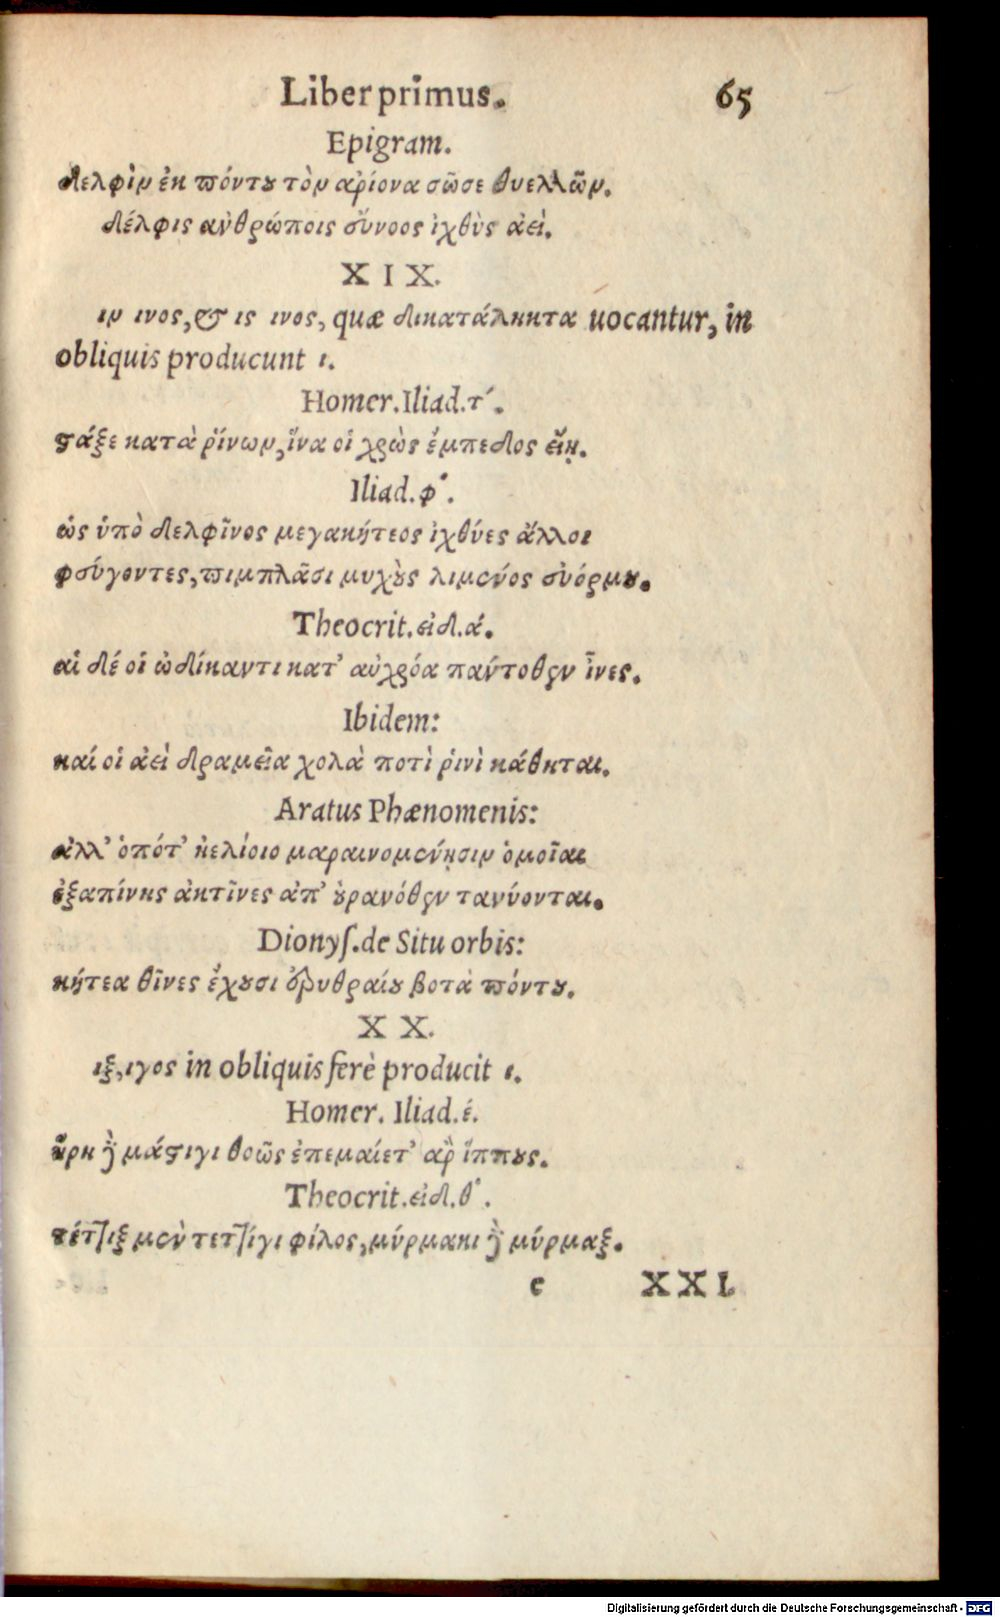 Liber primus. 65
Epigram.
δελφὶν ἐκ πόντου τὸν αρίονα σῶσε θυελλῶν.
δέλφις ανθρώποις σύνοος ἰχθὺς ἀεί.
X I X.
ιν ινος, & ις ινος, quæ δικατάληκτα uocantur, in
obliquis producunt ι.
Homer. Iliad. τ´.
στάξε κατὰ ῥίνων, ἵνα οἱ χρὼς ἔμπεδος εἴη.
Iliad. φ´.
ὡς ὑπὸ δελφῖνος μεγακήτεος ἰχθύες ἄλλοι
φεύγοντες, πιμπλᾶσι μυχοὺς λιμένος εὐόρμου.
Theocrit. εἰδ. ά.
αἱ δέ οἱ ὠδίκαντι κατ' αὐχένα πάντοθεν ἶνες.
Ibidem:
καί οἱ ἀεὶ δραμεῖα χολὰ ποτὶ ῥινὶ κάθηται.
Aratus Phænomenis:
ἀλλ' ὁπότ' ἠελίοιο μαραινομένῃσιν ὁμοῖαι
ἐξαπίνης ἀκτῖνες ἀπ' οὐρανόθεν τανύονται.
Dionyſ. de Situ orbis:
κήτεα θῖνες ἔχουσι ἐρυθραίου βοτὰ πόντου.
X X.
ιξ, ιγος in obliquis ferè producit ι.
Homer. Iliad. έ.
ἥρη δὲ μάστιγι θοῶς ἐπεμαίετ' ἀρ ἵππους.
Theocrit. εἰδ. θ´.
τέττιξ μὲν τεττίγι φίλος, μύρμακι δὲ μύρμαξ.
e XXI.
Digitalisierung gefördert durch die Deutsche Forschungsgemeinschaft - DFG